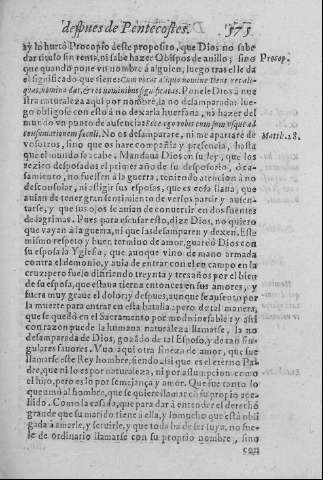 despues de Pentecostes. 573
ay lo hurtò Procopio deste proposito, que Dios no sabe
dar titulo sin renta, ni sabe hazer Obispos de anillo; sino Procop.
que quando pone vn nombre à alguien, luego tras el le da
el significado que tiene: Cum vocat aliquo nomine Deus
nomina dat, & res nominibus significatas. Ponele Dios à nue
stra naturaleza aqui por nombre, la no desamparada: lue
go obligose con esto à no dexarla huerfana, ni hazer del
mundo vn punto de ausencia: Ecce ego vobiscum sum vsque ad
consummationem sæculi. No os desamparare, ni me apartarè de Matth. 28.
vosotros, sino que os hare compañia y presencia, hasta
que el mundo se acabe. Mandaua Dios en su ley, que los
rezien desposados el primer año de su desposorio, ò ca-
samiento, no fuessen à la guerra, teniendo atencion à no
desconsolar, ni afligir sus esposas, que es cosa llana, que
auian de tener gran sentimiento de verlos partir y ausen-
tarse, y que sus ojos se auian de conuertir en dos fuentes
de lagrimas. Pues para escusar esto, dize Dios, no quiero
que vayan à la guerra, ni que las desamparen y dexen. Este
mismo respeto y buen termino de amor, guardò Dios con
su esposa la Yglesia, que aunque vino de mano armada
contra el demonio, y auia de entrar con el en campo en la
cruz; pero fuelo difiriendo treynta y tres años por el bien
de su esposa, que estaua tierna entonces en sus amores, y
fuera muy graue el dolor; y despues, aunque se ausentò por
la muerte para entrar en esta batalla; pero de tal manera,
que se quedò en el Sacramento por modo inefable: y assi
con razon puede la humana naturaleza llamarse, la no
desamparada de Dios, gozãdo de tal Esposo, y de tan sin-
gulares fauores. Vuo aqui otra fineza de amor, que fue
llamarse este Rey hombre, siendo assi que es el eterno Pa-
dre, que ni lo es por naturaleza, ni por assumpcion como
el hijo, pero es lo por semejança y amor. Que fue tanto lo
que amò al hombre, que se quiere llamar cõ su propio ape-
llido. Como la casada, que para dar à entender el derecho
grande que su marido tiene à ella, y lo mucho que està obli
gada à amarle, y seruirle, y que toda ha de ser suya, no sue-
le de ordinario llamarse con su proprio nombre, sino
con